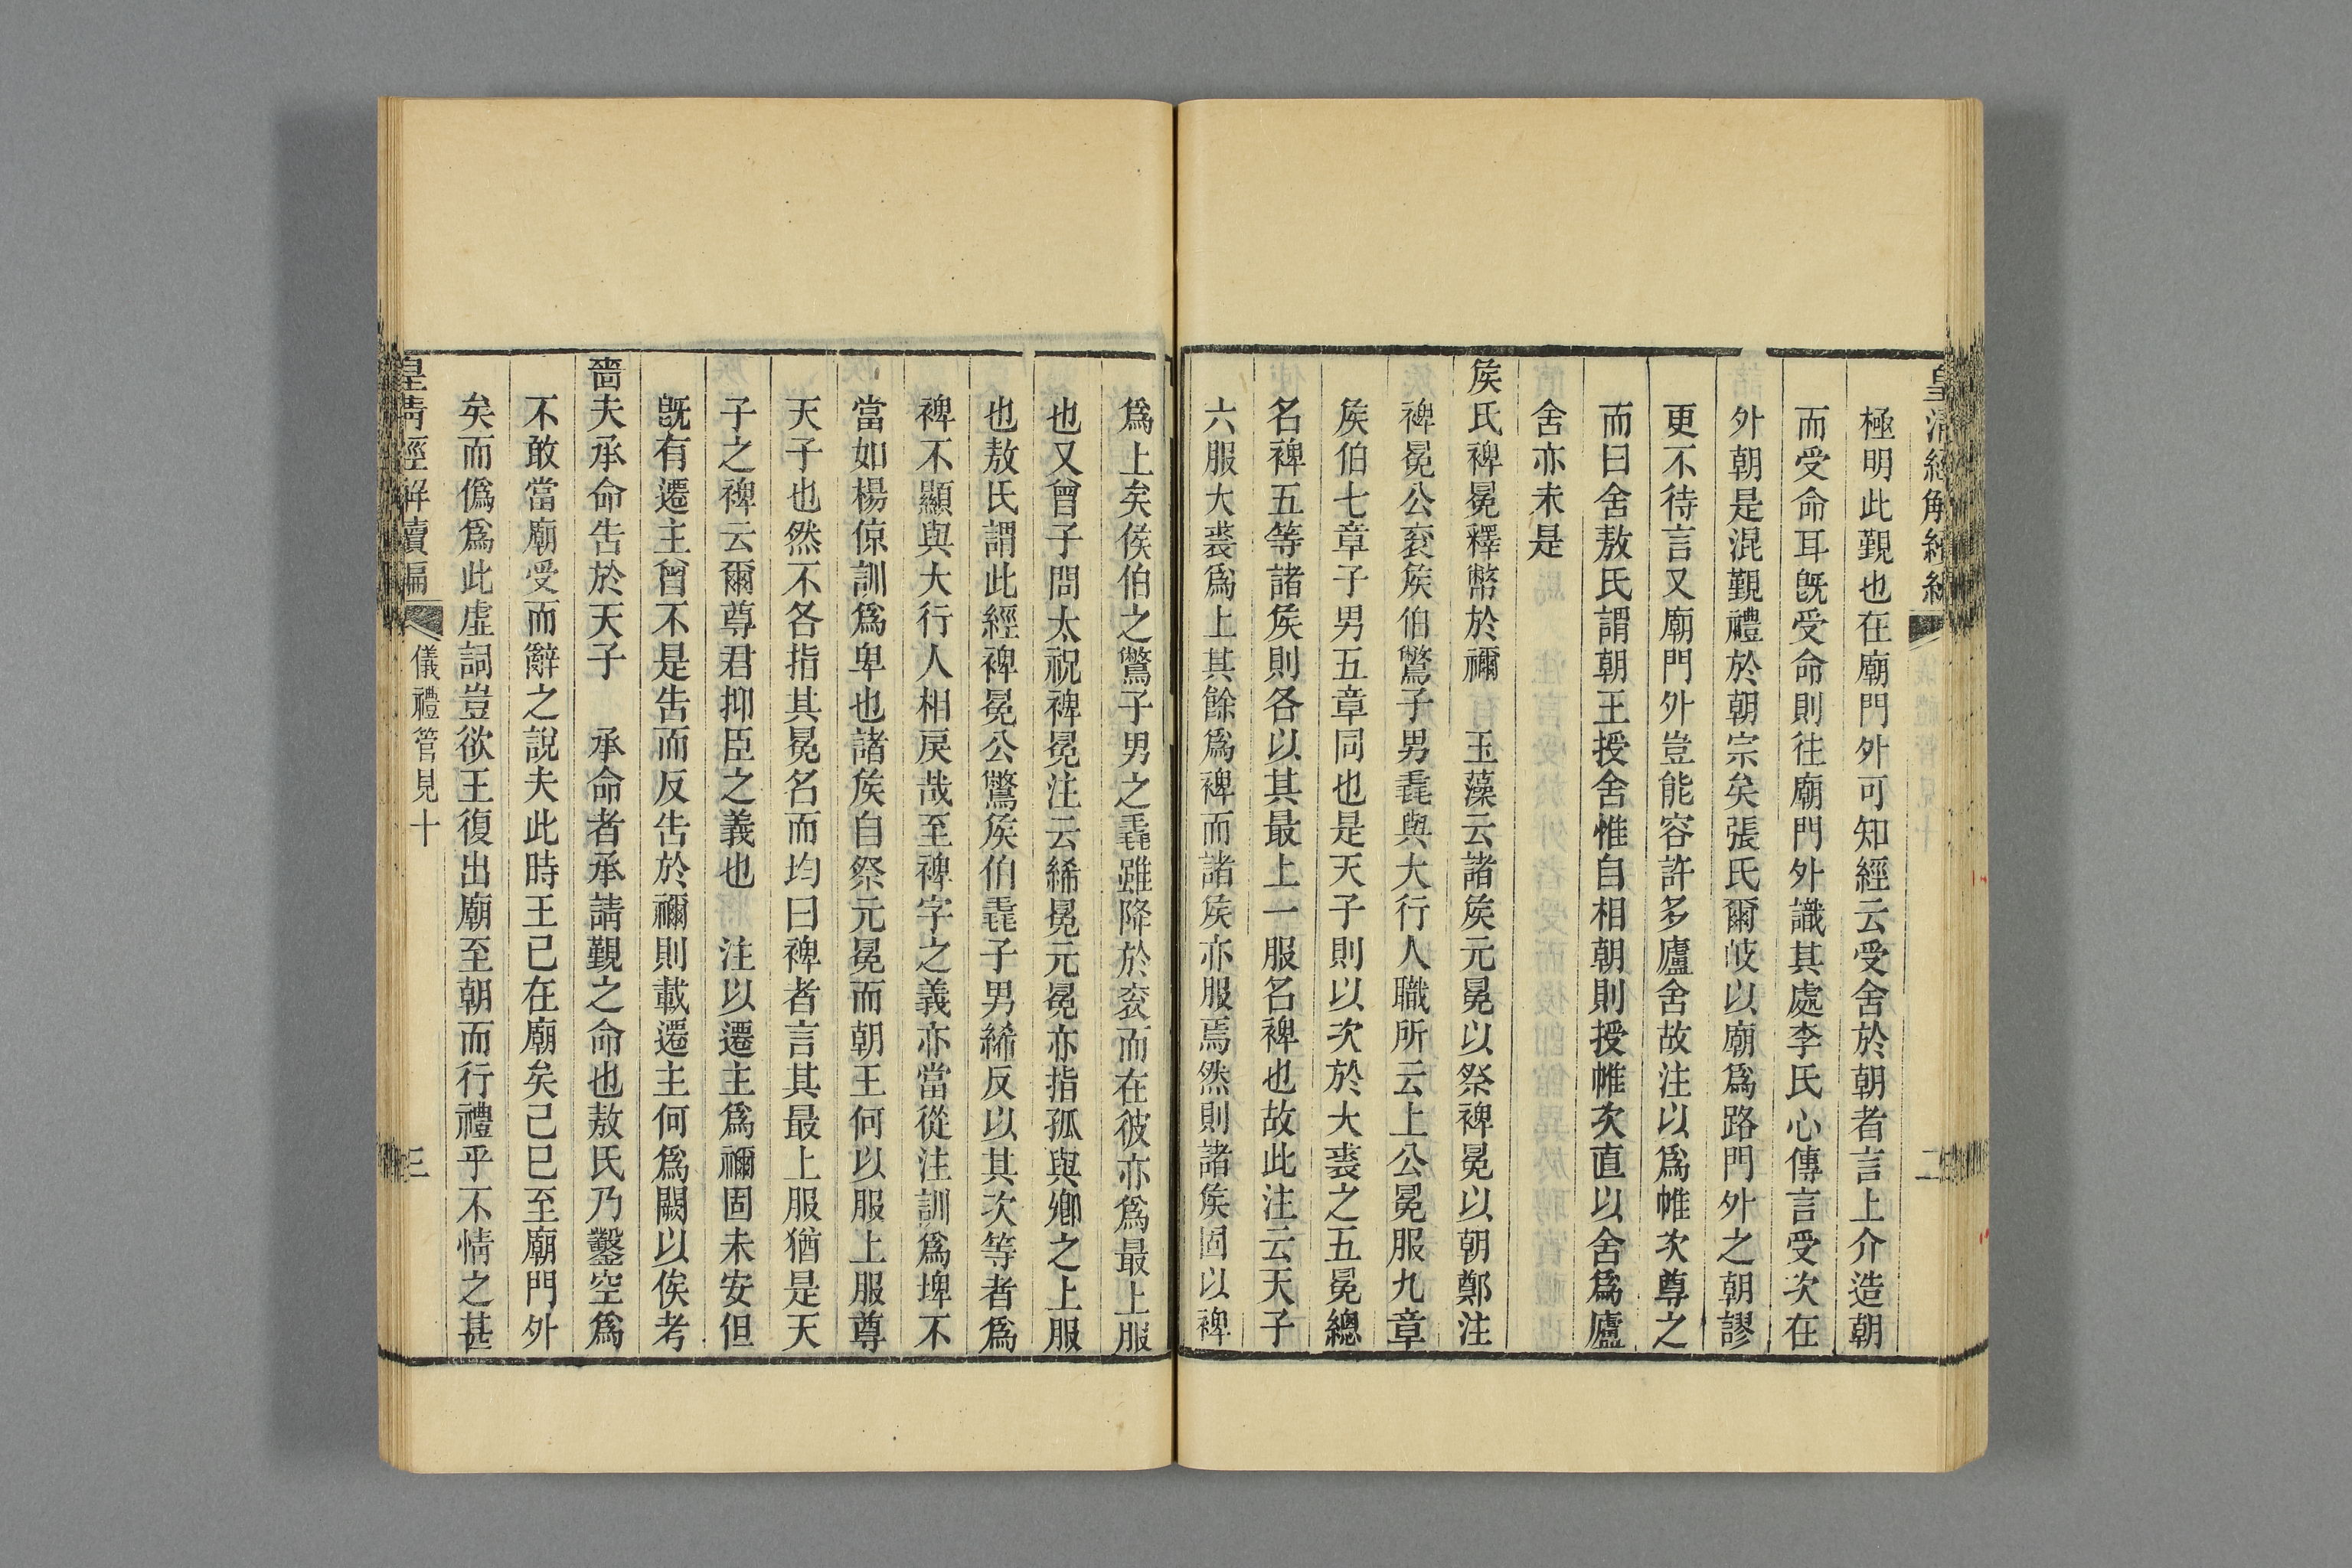 皇清經解續編
二
極明此覲也在廟門外可知經云受舍於朝者言上介造朝
而受命耳旣受命則往廟門外識其處李氏心傳言受次在
外朝是混覲禮於朝宗矣張氏爾岐以廟爲路門外之朝謬
更不待言又廟門外豈能容許多廬舍故注以爲帷次尊之
而曰舍敖氏謂朝王授舍惟自相朝則授帷次直以舍爲廬
舍亦未是
矦氏裨冕釋幣於禰　玉藻云諸矦元冕以祭裨冕以朝鄭注
裨冕公袞矦伯鷩子男毳與大行人職所云上公冕服九章
矦伯七章子男五章同也是天子則以次於大裘之五冕總
名裨五等諸矦則各以其最上一服名裨也故此注云天子
六服大裘爲上其餘爲裨而諸矦亦服焉然則諸矦固以裨
爲上矣侯伯之鷩子男之毳雖降於袞而在彼亦爲最上服
也又曾子問太祝裨冕注云絺冕元冕亦指孤與鄉之上服
也敖氏謂此經裨冕公鷩矦伯毳子男絺反以其次等者爲
裨不顯與大行人相戾哉至裨字之義亦當從注訓爲埤不
當如楊倞訓爲卑也諸矦自祭元冕而朝王何以服上服尊
天子也然不各指其冕名而均曰裨者言其最上服猶是天
子之裨云爾尊君抑臣之義也　注以遷主爲禰固未安但
旣有遷主曾不是告而反告於禰則載遷主何爲闕以俟考
嗇夫承命告於天子　承命者承請覲之命也敖氏乃鑿空爲
不敢當廟受而辭之說夫此時王已在廟矣己已至廟門外
矣而僞爲此虛詞豈欲王復出廟至朝而行禮乎不情之甚
皇清經解續編
儀禮管見十
三